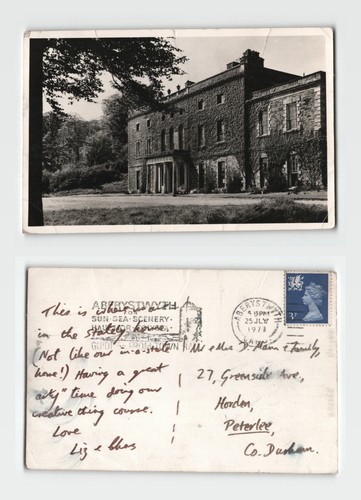 ABERYSTWYTH
SUN·SEA·SCENERY·
ABERYSTWYTH
4 30PM
25 JLY
1973
3P
This is where we are
in the stately home.
(Not like our in-a-state
home!) Having a great
"arty" time doing our
creative thing course.
Love
Liz & Chas
Mr & Mrs D. Mann & Family,
27, Greenside Ave,
Horden,
Peterlee,
Co. Durham.